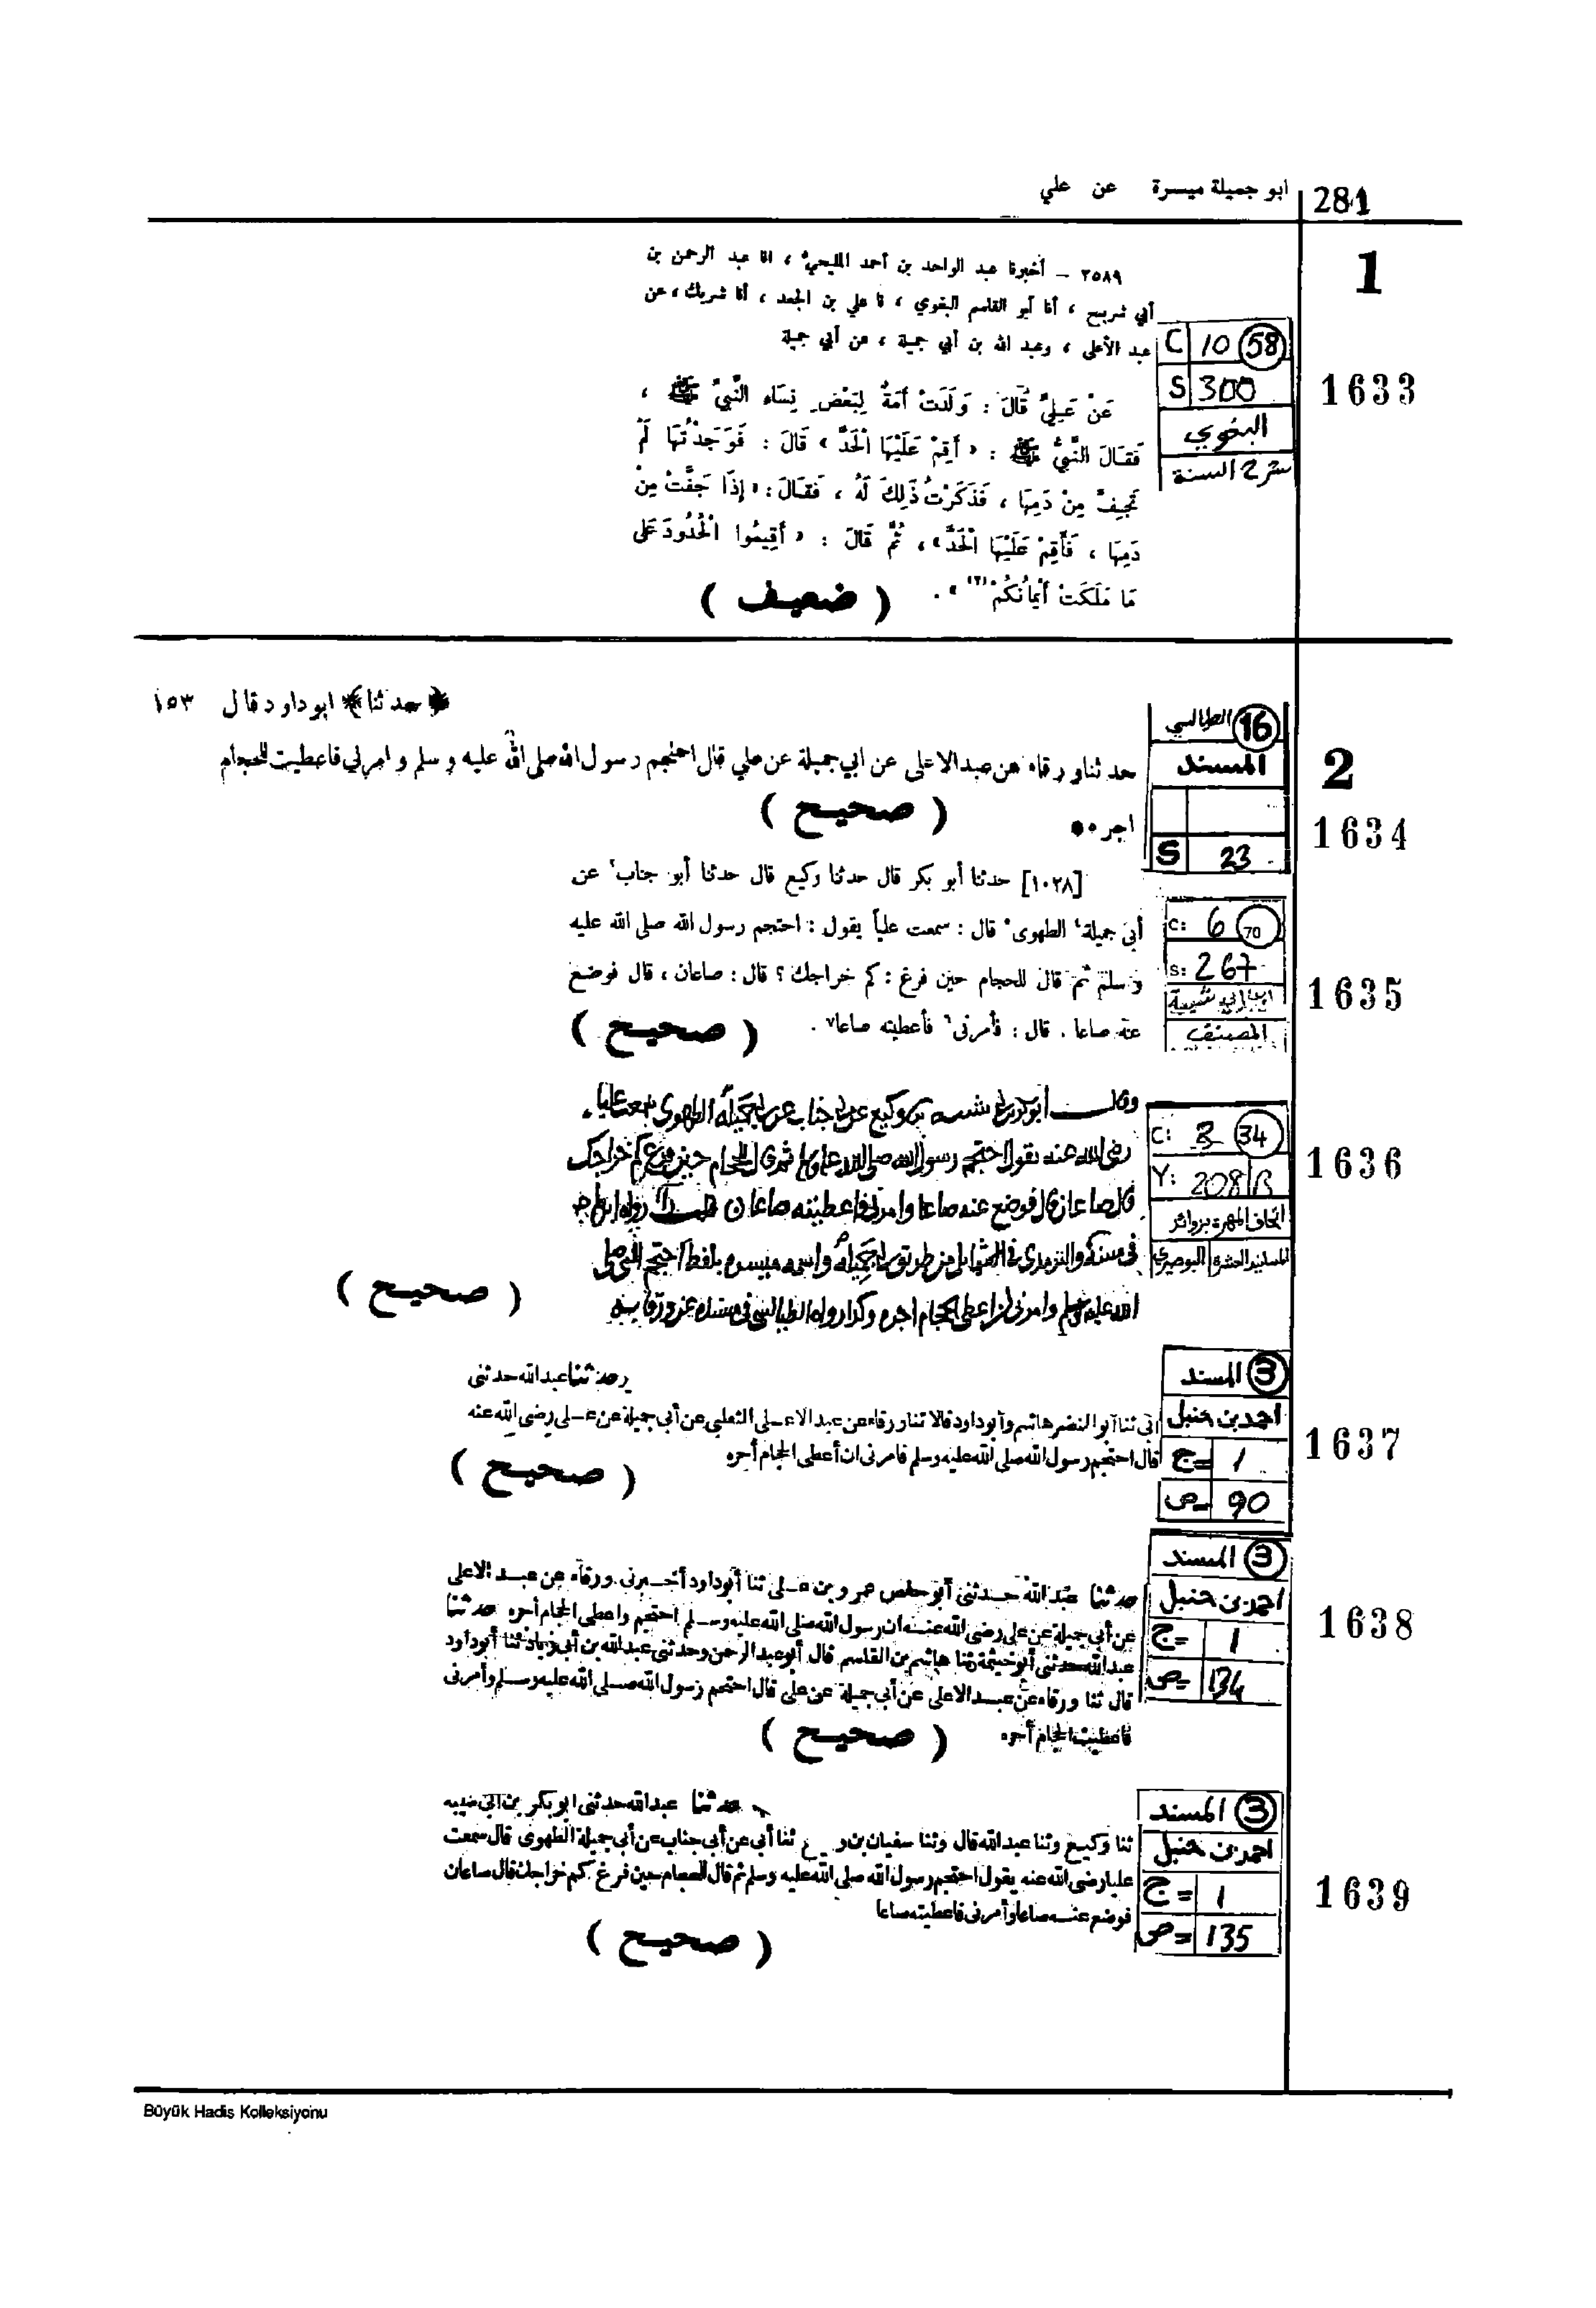 281 ابو جميلة ميسرة عن علي
1
٢٥٨٩ – أخبرنا عبد الواحد بن أحمد المليحي ، انا عبد الرحمن بن
أبي شريح ، أنا أبو القاسم البغوي ، نا علي بن الجعد ، أنا شريك ، عن
عبد الأعلى ، وعبد الله بن أبي جميلة ، عن أبي جميلة
عَنْ عَلِيٍّ قَالَ : وَلَدَتْ أَمَةٌ لِبَعْضِ نِسَاءِ النَّبِيِّ ﷺ ،
فَقَالَ النَّبِيُّ ﷺ : « أَقِمْ عَلَيْهَا الْحَدَّ » قَالَ : فَوَجَدْتُهَا لَمْ
تَجِفَّ مِنْ دَمِهَا ، فَذَكَرْتُ ذَلِكَ لَهُ ، فَقَالَ : « إِذَا جَفَّتْ مِنْ
دَمِهَا ، فَأَقِمْ عَلَيْهَا الْحَدَّ » ، ثُمَّ قَالَ : « أَقِيمُوا الْحُدُودَ عَلَى
مَا مَلَكَتْ أَيْمَانُكُمْ (٢) » .
( ضعيف )
C 10 58
S 300
البغوي
شرح السنة
1633
﴿ حدثنا ﴾ ابو داود قال ١٥٣
حدثنا ورقاء عن عبد الاعلى عن ابي جميلة عن علي قال احتجم رسول الله صلى الله عليه وسلم و امرني فاعطيت الحجام
اجره
( صحيح )
16 الطيالسي
المسند
S 23
2
1634
[١٠٢٨] حدثنا أبو بكر قال حدثنا وكيع قال حدثنا أبو جناب عن
أبى جميلة الطهوى قال : سمعت علياً يقول : احتجم رسول الله صلى الله عليه
وسلم ثم قال للحجام حين فرغ : كم خراجك ؟ قال : صاعان ، قال فوضع
عنه صاعا . قال : فأمرنى فأعطيته صاعا .
( صحيح )
C: 6 70
S: 267
ابن ابي شيبة
المصنف
1635
وقال أبو بكر بن أبي شيبة وكيع عن أبي جناب عن أبي جميلة الطهوي سمعت عليا
رضي الله عنه يقول احتجم رسول الله صلى الله عليه وسلم ثم قال للحجام حين فرغ كم خراجك
قال صاعان قال فوضع عنه صاعا وامرني فاعطيته صاعا رواه ابن ماجه
في سننه والترمذي في الشمائل من طريق أبي جميلة واسمه ميسرة بلفظ احتجم النبي صلى
الله عليه وسلم وامرني ان اعطي الحجام اجره وكذا رواه الطيالسي في مسنده عن ورقاء به
( صحيح )
C: 3 34
Y: 208/B
اتحاف المهرة بزوائر
المسانيد العشرة البوصيري
1636
حدثنا عبد الله حدثنى
أبى ثنا أبو النضر هاشم وأبو داود قالا ثنا ورقاء عن عبد الاعلى الثعلبى عن أبى جميلة عن على رضى الله عنه
قال احتجم رسول الله صلى الله عليه وسلم فامرنى ان أعطى الحجام أجره
( صحيح )
3 المسند
احمد بن حنبل
ج= 1
ص= 90
1637
حدثنا عبد الله حدثنى أبو حفص عمرو بن على ثنا أبو داود أخبرنى ورقاء عن عبد الاعلى
عن أبى جميلة عن على رضى الله عنه ان رسول الله صلى الله عليه وسلم احتجم واعطى الحجام أجره حدثنا
عبد الله حدثنى أبو خيثمة ثنا هاشم بن القاسم قال أبو عبد الرحمن وحدثنى عبد الله بن أبى زياد ثنا أبو داود
قال ثنا ورقاء عن عبد الاعلى عن أبى جميلة عن على قال احتجم رسول الله صلى الله عليه وسلم وأمرنى
فاعطيت الحجام أجره
( صحيح )
3 المسند
احمد بن حنبل
ج= 1
ص= 134
1638
حدثنا عبد الله حدثنى ابو بكر بن ابى شيبه
ثنا وكيع وثنا عبد الله قال وثنا سفيان بن وكيع ثنا أبى عن أبى جناب عن أبى جميلة الطهوى قال سمعت
عليا رضى الله عنه يقول احتجم رسول الله صلى الله عليه وسلم ثم قال للحجام حين فرغ كم خراجك قال صاعان
فوضع عنه صاعا وأمرنى فاعطيته صاعا
( صحيح )
3 المسند
احمد بن حنبل
ج= 1
ص= 135
1639
Büyük Hadis Kolleksiyonu